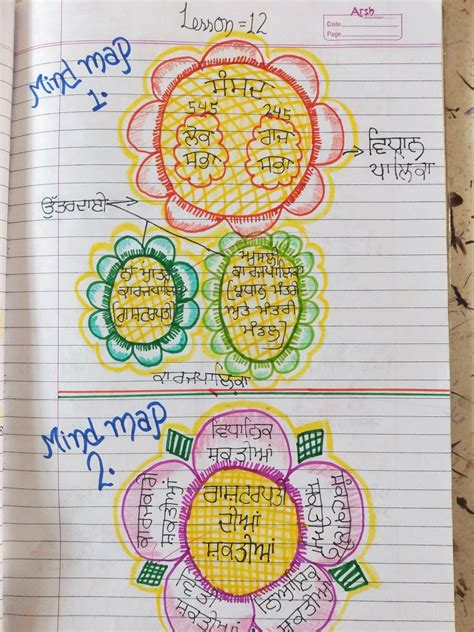 Lesson = 12
Arsh
Date
Page
Mind map
1.
ਸੰਸਦ
545
245
ਲੋਕ
ਸਭਾ
ਰਾਜ
ਸਭਾ
ਵਿਧਾਨ
ਪਾਲਿਕਾ
ਉੱਤਰਦਾਈ
ਨਾਂ ਮਾਤਰ
ਕਾਰਜਪਾਲਿਕਾ
(ਰਾਸ਼ਟਰਪਤੀ)
ਅਸਲੀ
ਕਾਰਜਪਾਲਿਕਾ
(ਪ੍ਰਧਾਨ ਮੰਤਰੀ
ਅਤੇ ਮੰਤਰੀ
ਮੰਡਲ)
ਕਾਰਜਪਾਲਿਕਾ
Mind map
2.
ਵਿਧਾਨਿਕ
ਸ਼ਕਤੀਆਂ
ਕਾਰਜਕਾਰੀ
ਸ਼ਕਤੀਆਂ
ਰਾਸ਼ਟਰਪਤੀ
ਦੀਆਂ
ਸ਼ਕਤੀਆਂ
ਸੰਕਟਕਾਲੀਨ
ਸ਼ਕਤੀਆਂ
ਵਿੱਤੀ
ਸ਼ਕਤੀਆਂ
ਨਿਆਇਕ
ਸ਼ਕਤੀਆਂ